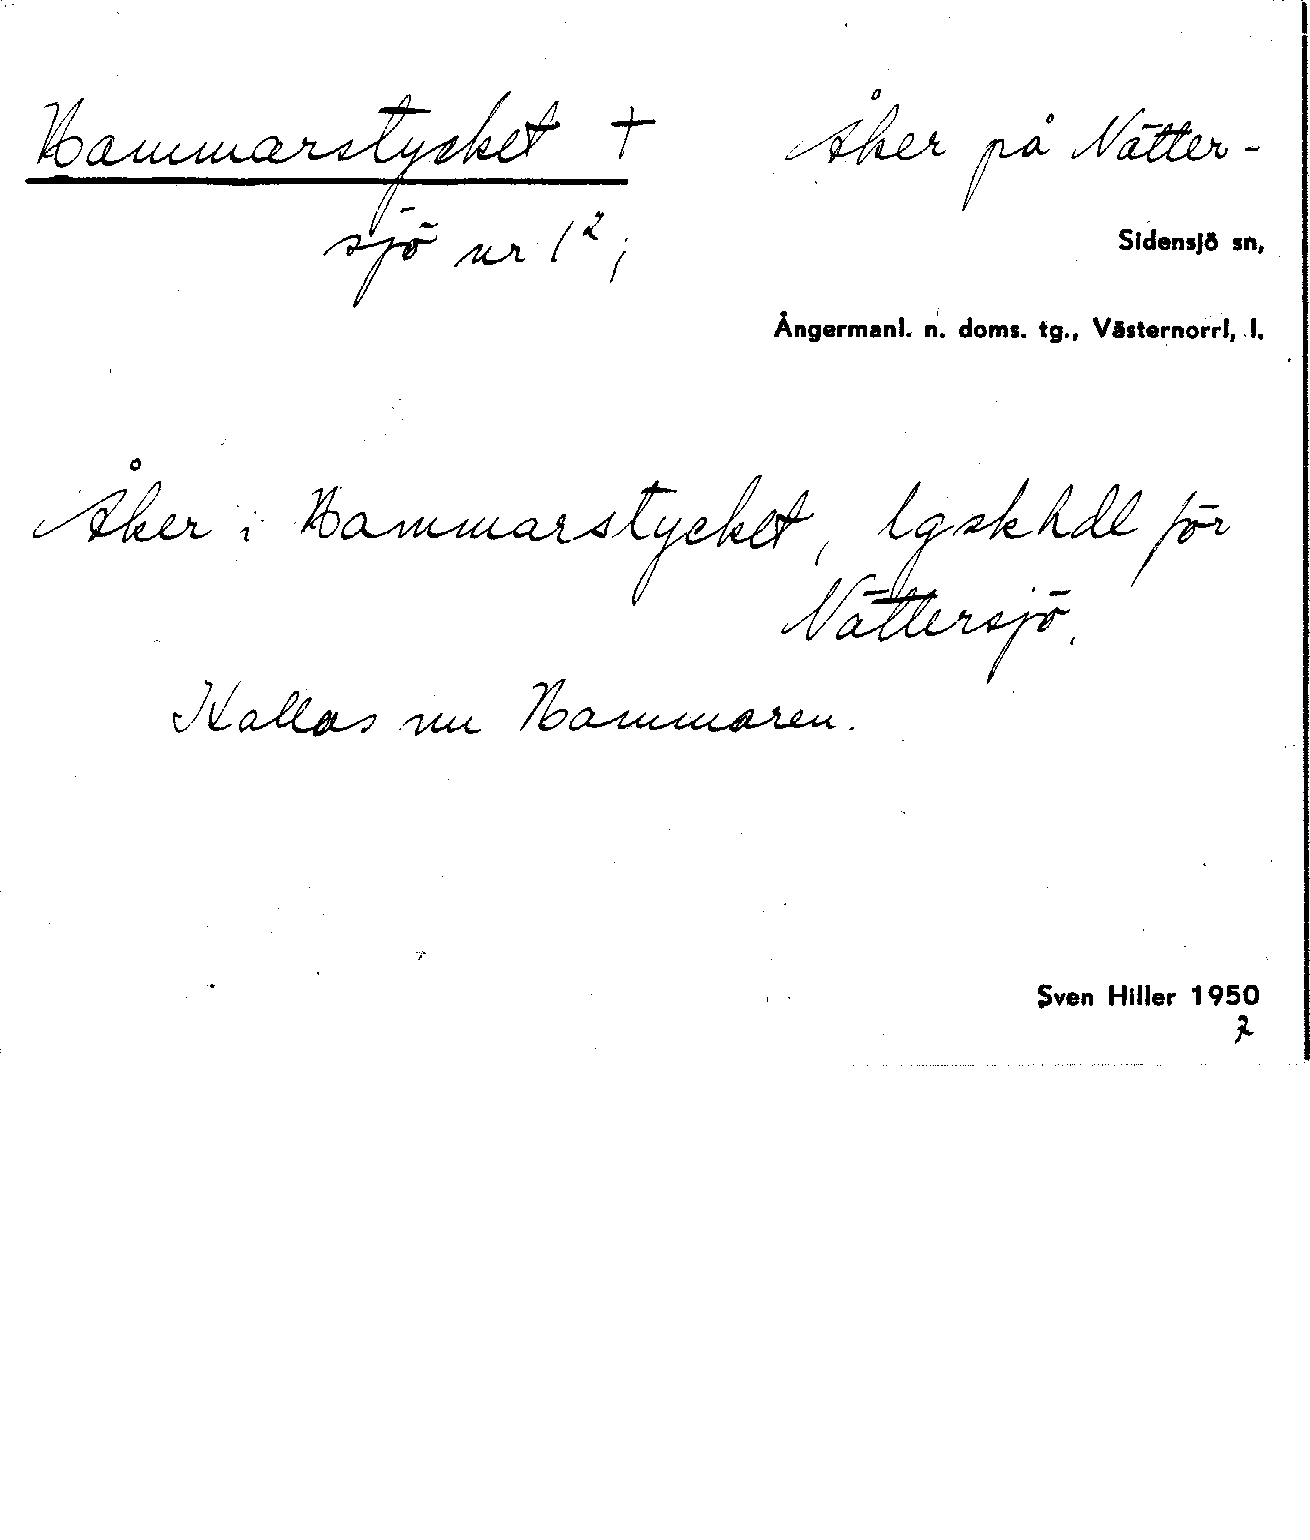 Hammarstycket † Åker på Nätter-
sjö nr 1²;
Sidensjö sn,
Ångermanl. n. doms. tg., Västernorrl. l.
Åker i Hammarstycket, lgskhdl för
Nättersjö.
Kallas nu Hammaren.
Sven Hiller 1950